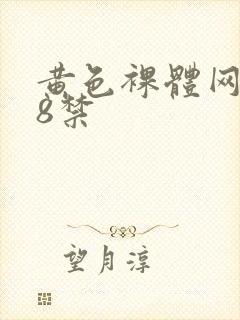 黄色裸體网
8禁
望月淳